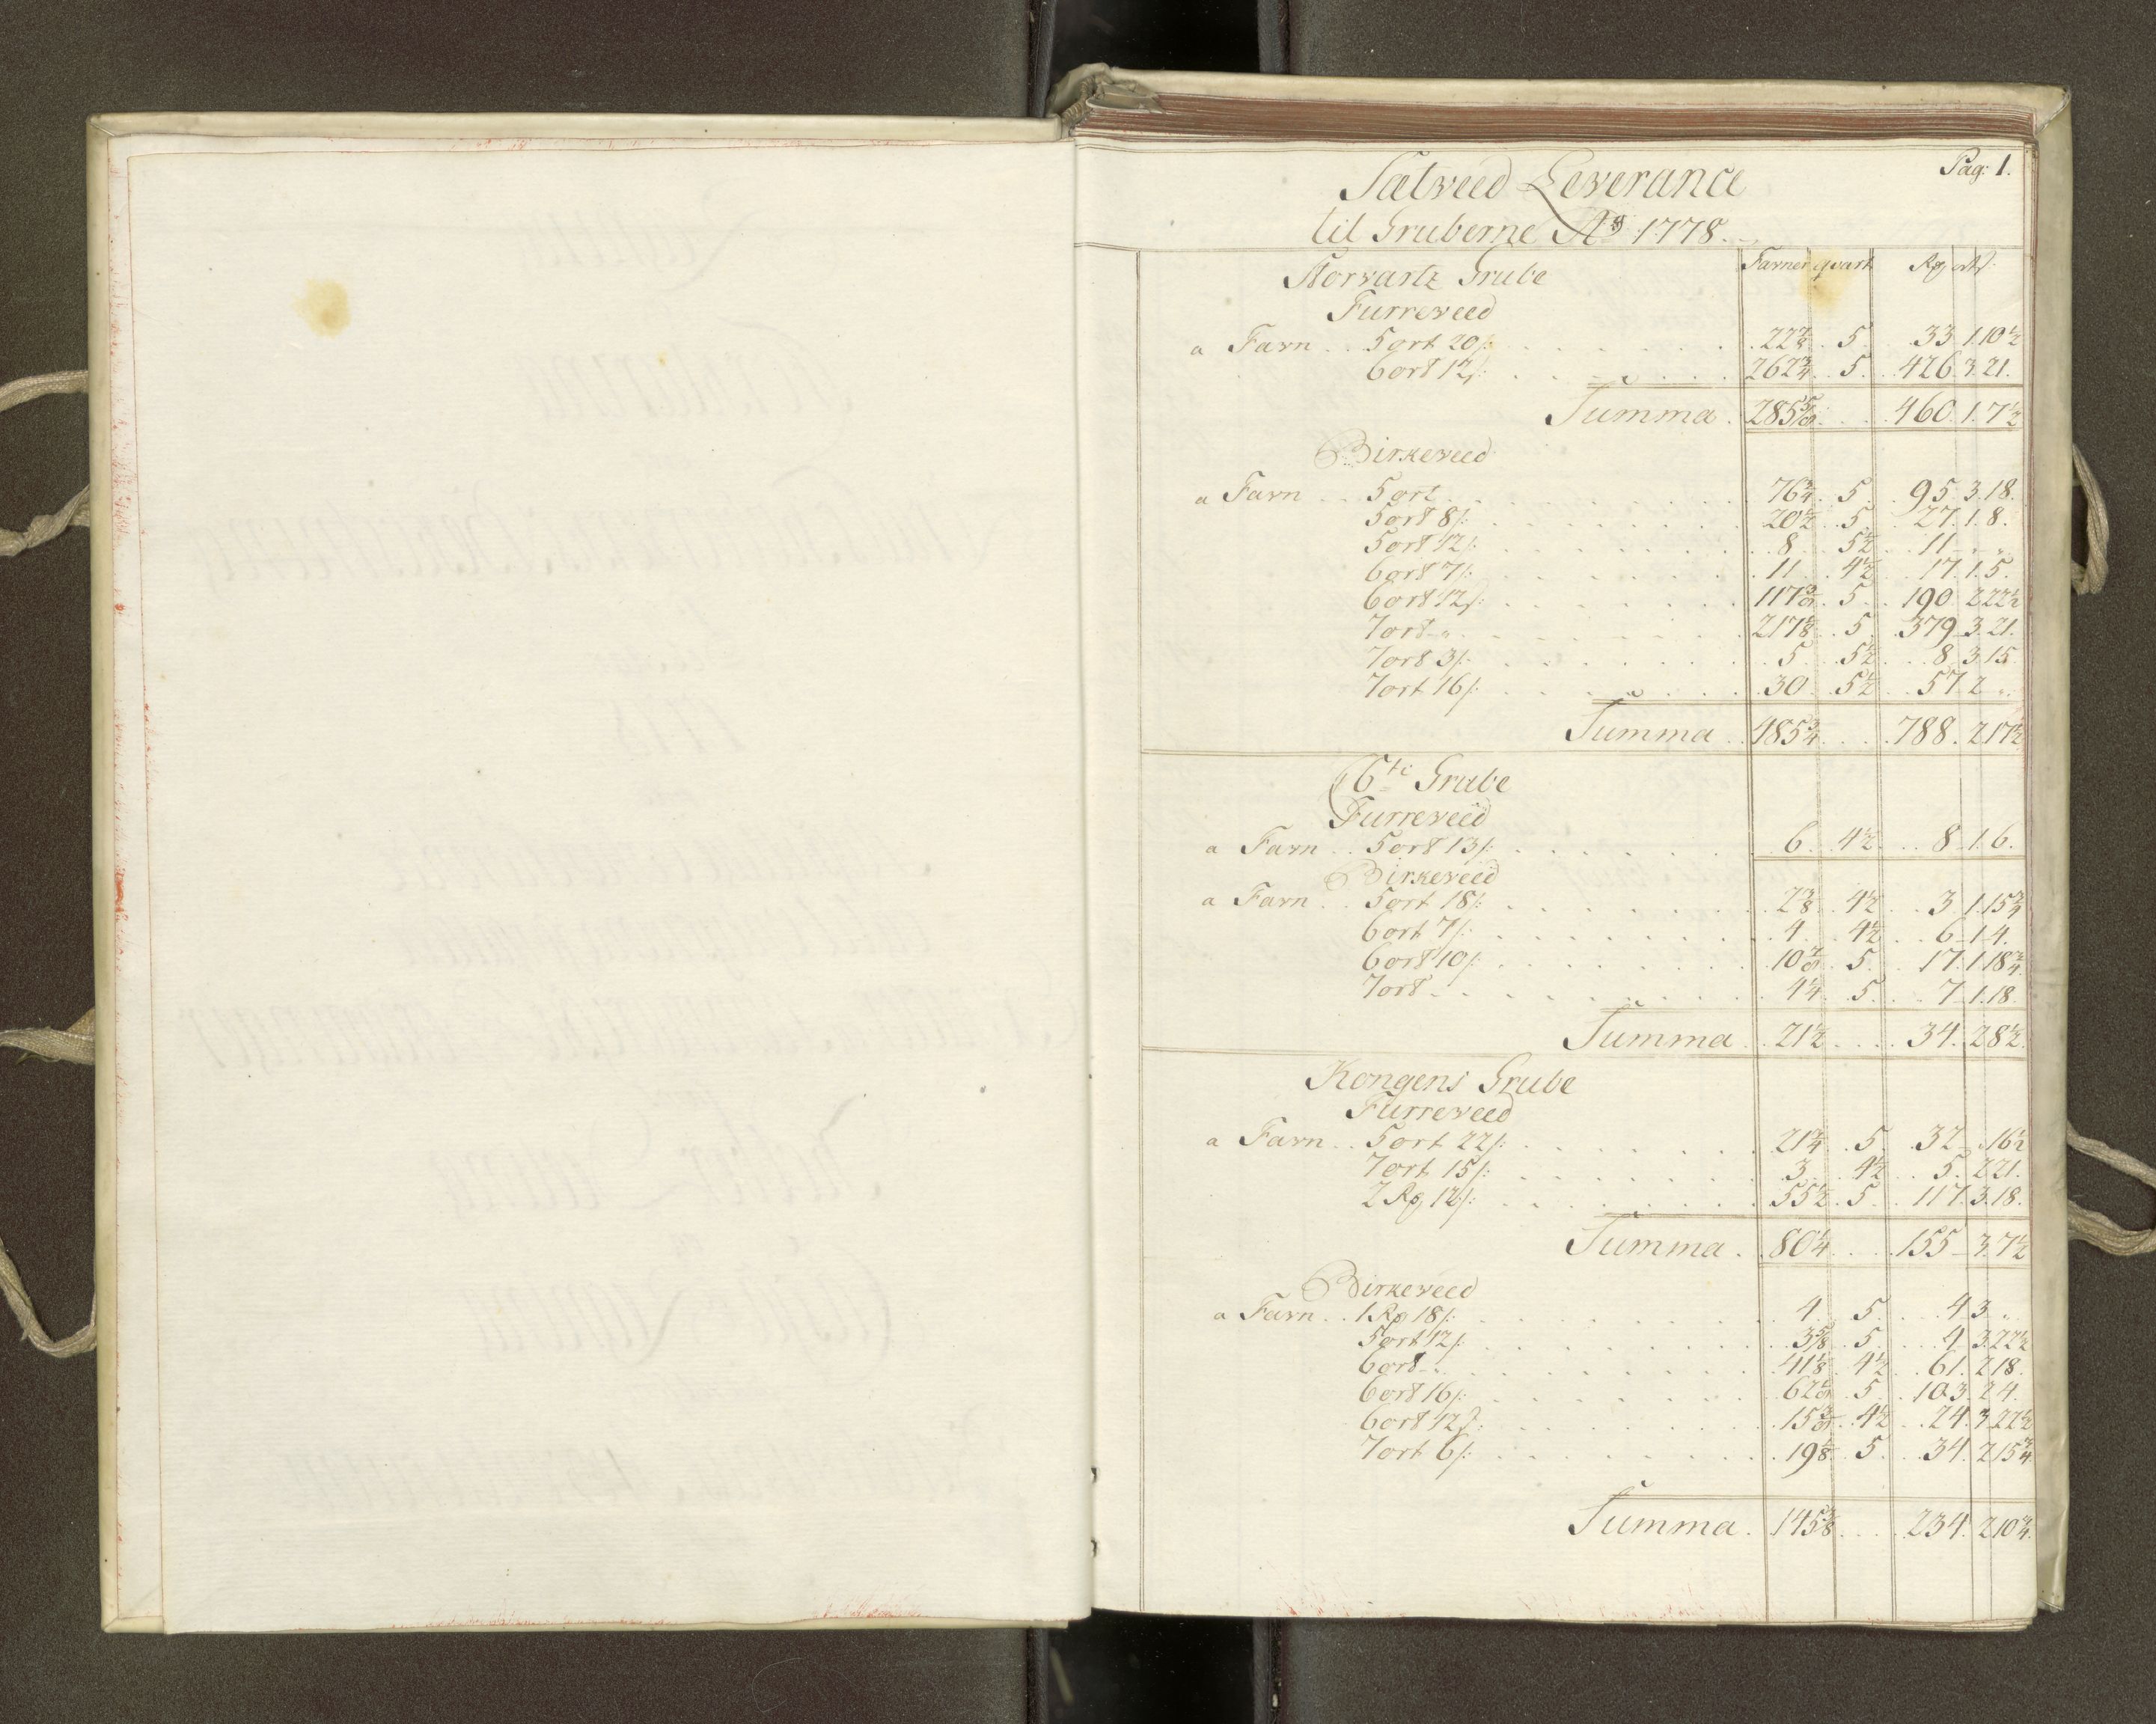 Pag: 1.
Sætveed Leverance
til Gruberne Ao 1778.
Favner qvart Rdr ort s:
Storvartz Grube
Furreveed
a Favn .. 5 ort 20 s: 22 7/8 . 5 . 33 1. 10 1/2
6 ort 12 s: 262 3/4 . 5 . 426. 3. 21.
Summa . 285 5/8 . 460. 1. 7 1/2
Birkeveed
a Favn .. 5 ort 76 3/4 . 5 . 95. 3. 18.
5 ort 8 s: 20 1/2 . 5 . 27. 1. 8.
5 ort 12 s: 8 . 5 1/2 . 11 „ „
6 ort 7 s: 11 . 4 1/2 . 17. 1. 5.
6 ort 12 s: 117 3/8 . 5 . 190. 2 22 1/2
7 ort „ 217 1/8 . 5 . 379. 3. 21.
7 ort 3 s: 5 . 5 1/2 . 8. 3. 15.
7 ort 16 s: 30 . 5 1/2 . 57. 2 „
Summa . 485 3/4 . 788. 2 17 1/2
6te Grube
Furreveed
a Favn .. 5 ort 13 s: 6. 4 1/2 . 8. 1. 6.
Birkeveed
a Favn .. 5 ort 18 s: 2 3/8 . 4 1/2 . 3 1. 15 3/4
6 ort 7 s: 4 . 4 1/2 . 6. 1 4.
6 ort 10 s: 10 7/8 . 5 . 17. 1. 18 3/4
7 ort 4 1/4 . 5 . 7. 1. 18.
Summa . 21 1/2 . 34. 2 8 1/2
Kongens Grube
Furreveed
a Favn .. 5 ort 22 s: 21 3/4 . 5 . 32 „ 16 1/2
7 ort 15 s: 3 . 4 1/2 . 5. 2 21.
2 Rdr 12 s: 55 1/2 . 5 . 117. 3. 18.
Summa . 80 1/4 . 155. 3. 7 1/2
Birkeveed
a Favn .. 1 Rdr 18 s: 4 . 5 . 4 3 „
5 ort 12 s: 3 5/8 . 5 . 4. 3. 22 1/2
6 ort „ 41 1/8 . 4 1/2 . 61. 2 18.
6 ort 16 s: 62 1/8 . 5 . 103. 2 4.
6 ort 12 s: 15 3/8 . 4 1/2 . 24. 3 22 1/2
7 ort 6 s: 19 1/8 . 5 . 34. 2 15 3/4
Summa . 145 3/8 . 234. 2 10 3/4